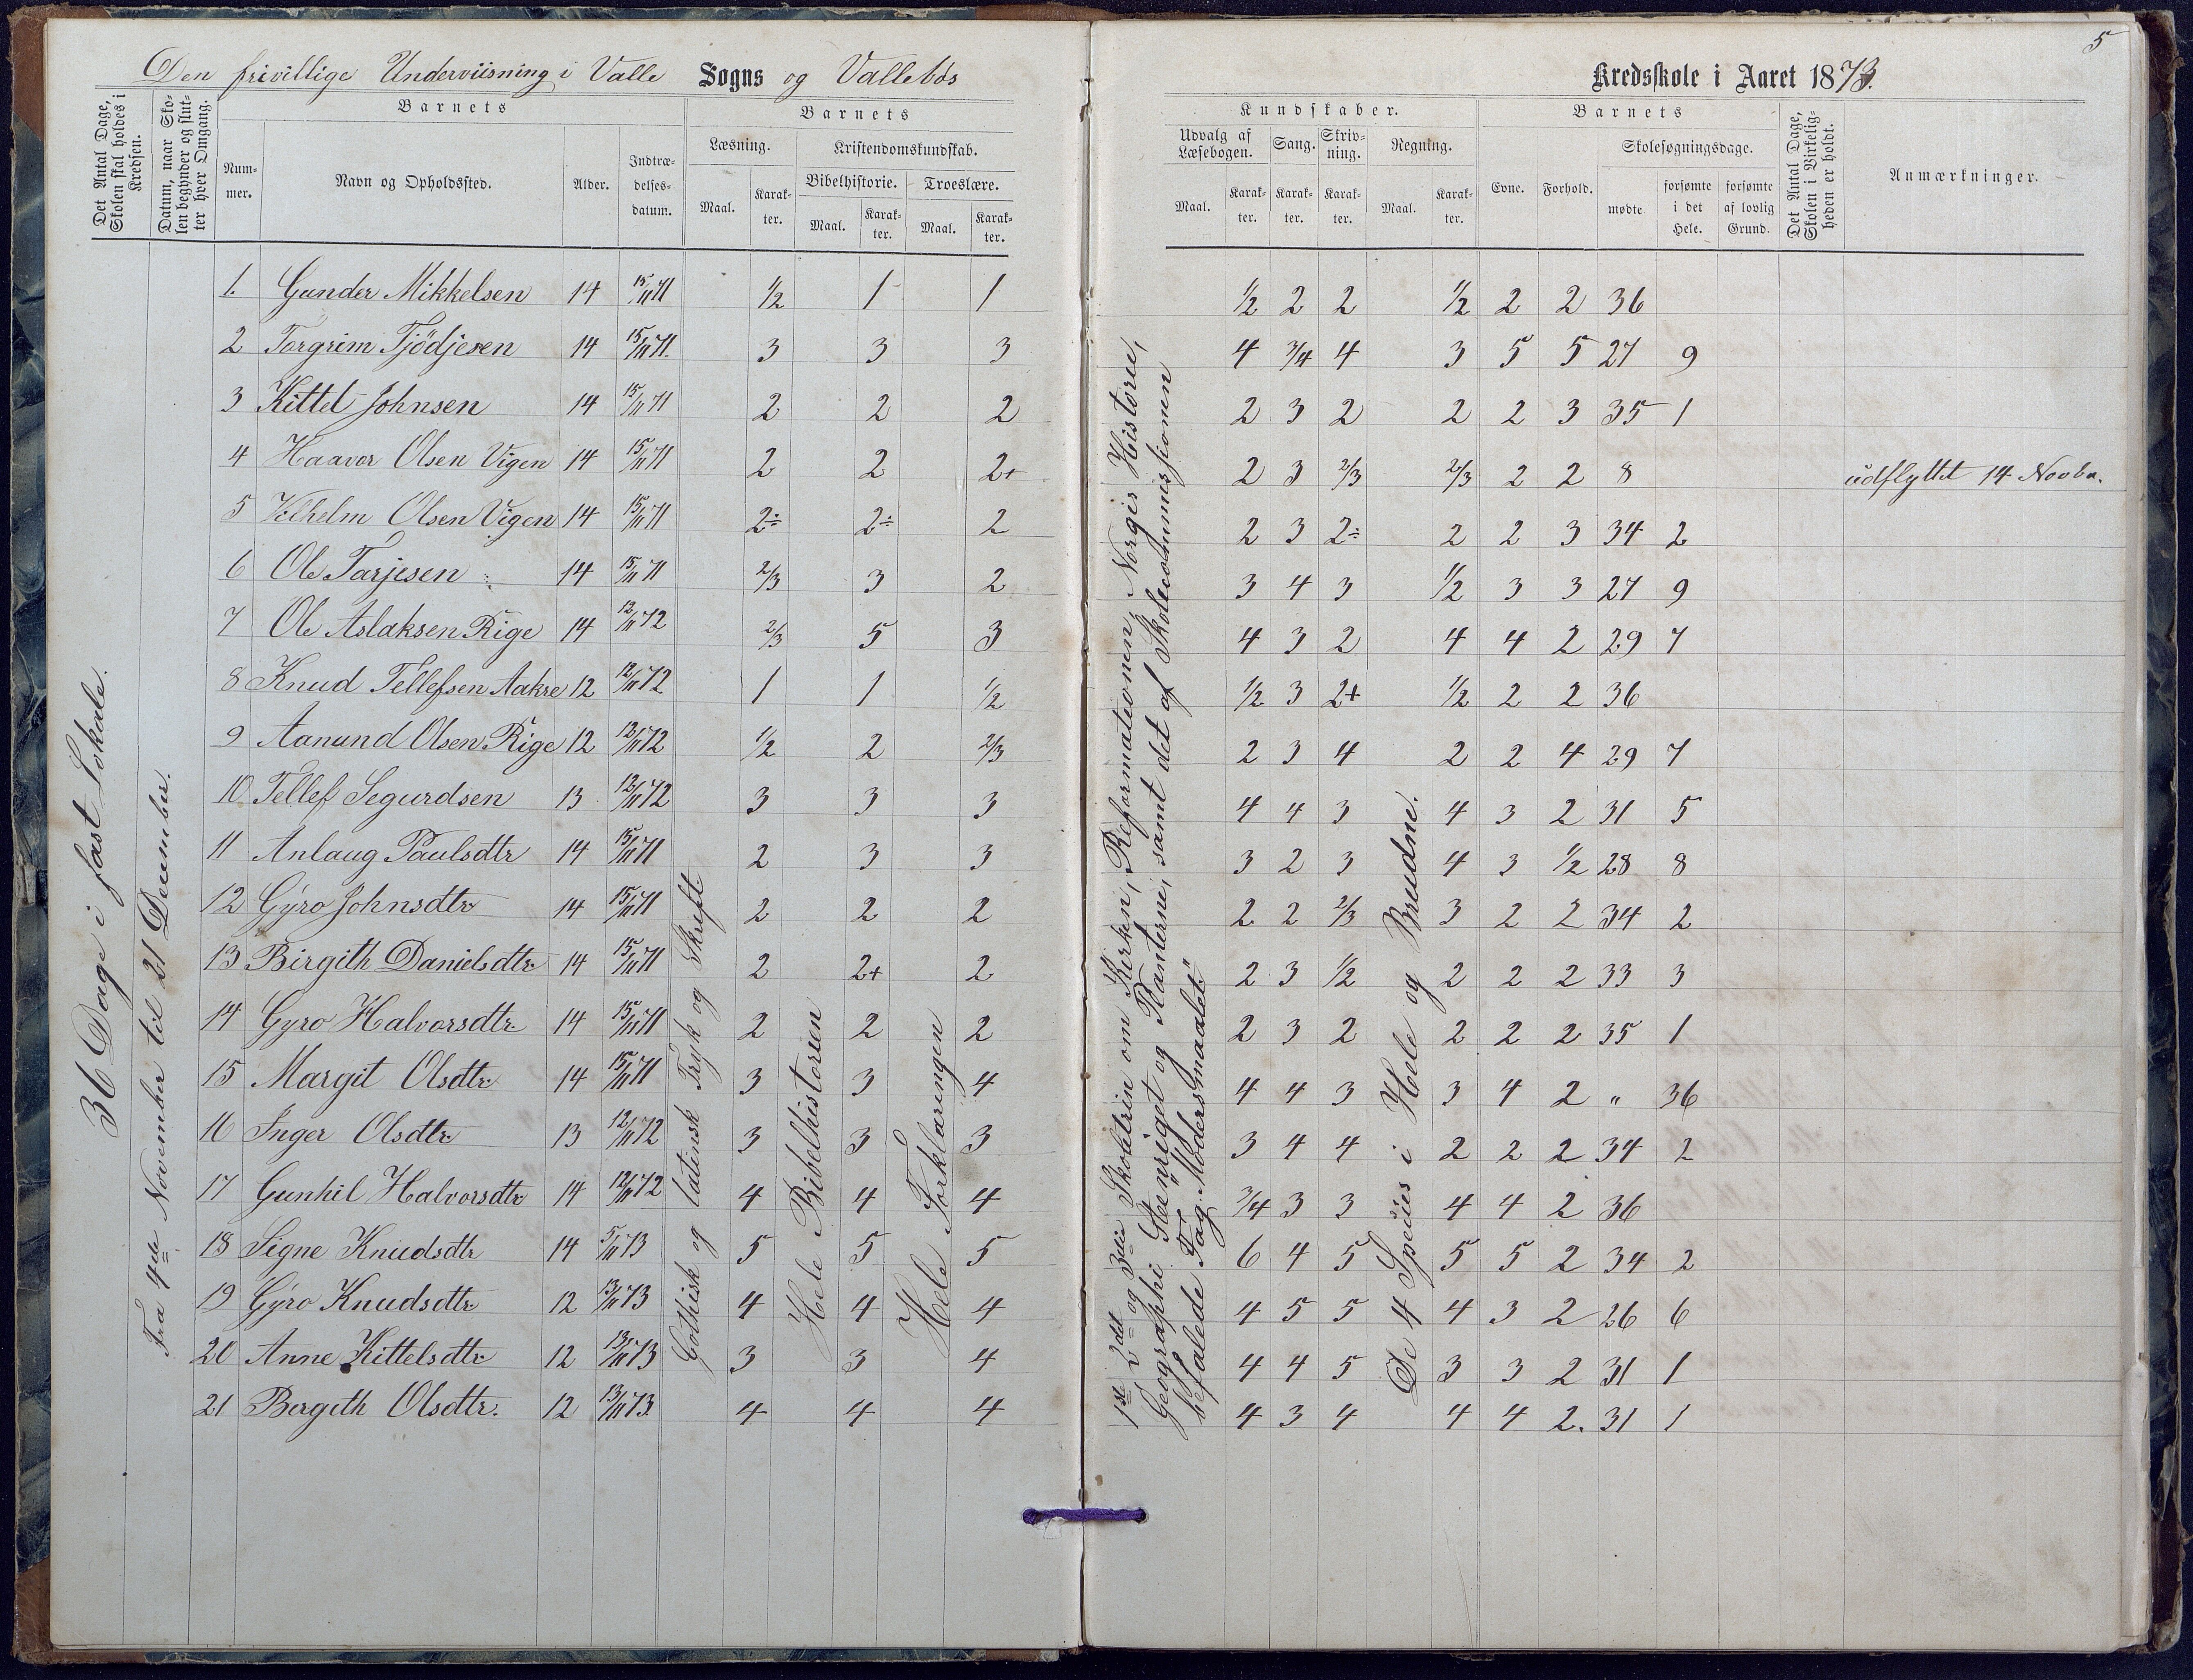 Den frivillige Underviisning i Valle Sogns og Vallebös
Kredsskole i Aaret 1873.
5
Det Antal Dage, Skolen skal holdes i Kredsen.
Datum, naar Skolen begynder og slutter hver Omgang.
Barnets
Nummer.
Navn og Opholdssted.
Alder.
Indtrædelsesdatum.
Barnets
Læsning.
Maal.
Karakter.
Kristendomskundskab.
Bibelhistorie.
Maal.
Karakter.
Troeslære.
Maal.
Karakter.
Kundskaber.
Udvalg af Læsebogen.
Maal.
Karakter.
Sang.
Karakter.
Skrivning.
Karakter.
Regning.
Maal.
Karakter.
Barnets
Evne.
Forhold.
Skolesøgningsdage.
mødte
forsømte i det Hele.
forsømte af lovlig Grund.
Det Antal Dage, Skolen i Virkeligheden er holdt.
Anmærkninger.
36 Dage i fast Lokale.
Fra 4de November til 21 December.
Gothisk og latinsk Tryk og Skrift
Hele Bibelhistorien
Hele Forklaringen
1ste, 2det og 3die Skoletrin om Kirken, Reformationen, Norges Historie,
Geographi Steenriget og Planterne, samt det af Skolecommissionen
befalede Fag "Modersmaalet."
De 4 Speties i Hele og Brudne.
1. Gunder Mikkelsen 14 15/11 71 1/2 1 1 1/2 2 2 1/2 2 2 36
2 Torgrim Tjödjesen 14 15/11 71. 3 3 3 4 3/4 4 3 5 5 27 9
3 Kittel Johnsen 14 15/11 71 2 2 2 2 3 2 2 2 3 35 1
4 Haavor Olsen Vigen 14 15/11 71 2 2 2+ 2 3 2/3 2/3 2 2 8 udflyttet 14 Novbr.
5 Vilhelm Olsen Vigen 14 15/11 71 2÷ 2÷ 2 2 3 2÷ 2 2 3 34 2
6 Ole Tarjesen 14 15/11 71 2/3 3 2 3 4 3 1/2 3 3 27 9
7 Ole Aslaksen Rige 14 12/11 72 2/3 5 3 4 3 2 4 4 2 29 7
8 Knud Tellefsen Aakre 12 12/11 72 1 1 1/2 1/2 3 2+ 1/2 2 2 36
9 Aanund Olsen Rige 12 12/11 72 1/2 2 2/3 2 3 4 2 2 4 29 7
10 Tellef Segurdsen 13 12/11 72 3 3 3 4 4 3 4 3 2 31 5
11 Anlaug Paulsdtr 14 15/11 71 2 3 3 3 2 3 4 3 1/2 28 8
12 Gyro Johnsdtr 14 15/11 71 2 2 2 2 2 2/3 3 2 2 34 2
13 Birgith Danielsdtr 14 15/11 71 2 2+ 2 2 3 1/2 2 2 2 33 3
14 Gyro Halvorsdtr. 14 15/11 71 2 2 2 2 3 2 2 2 2 35 1
15 Margit Olsdtr. 14 15/11 71 3 3 4 4 4 3 3 4 2 " 36
16 Inger Olsdtr 13 12/11 72 3 3 3 3 4 4 2 2 2 34 2
17 Gunhil Halvorsdtr 14 12/11 72 4 4 4 3/4 3 3 4 4 2 36
18 Signe Knudsdtr 14 5/11 73 5 5 5 6 4 5 5 5 2 34 2
19 Gyro Knudsdtr 12 13/11 73 4 4 4 4 5 5 4 3 2 26 6
20 Anne Kittelsdtr 12 13/11 73 3 3 4 4 4 5 3 3 2 31 1
21 Bergith Olsdtr. 12 13/11 73. 4 4 4 4 3 4 4 4 2. 31 1